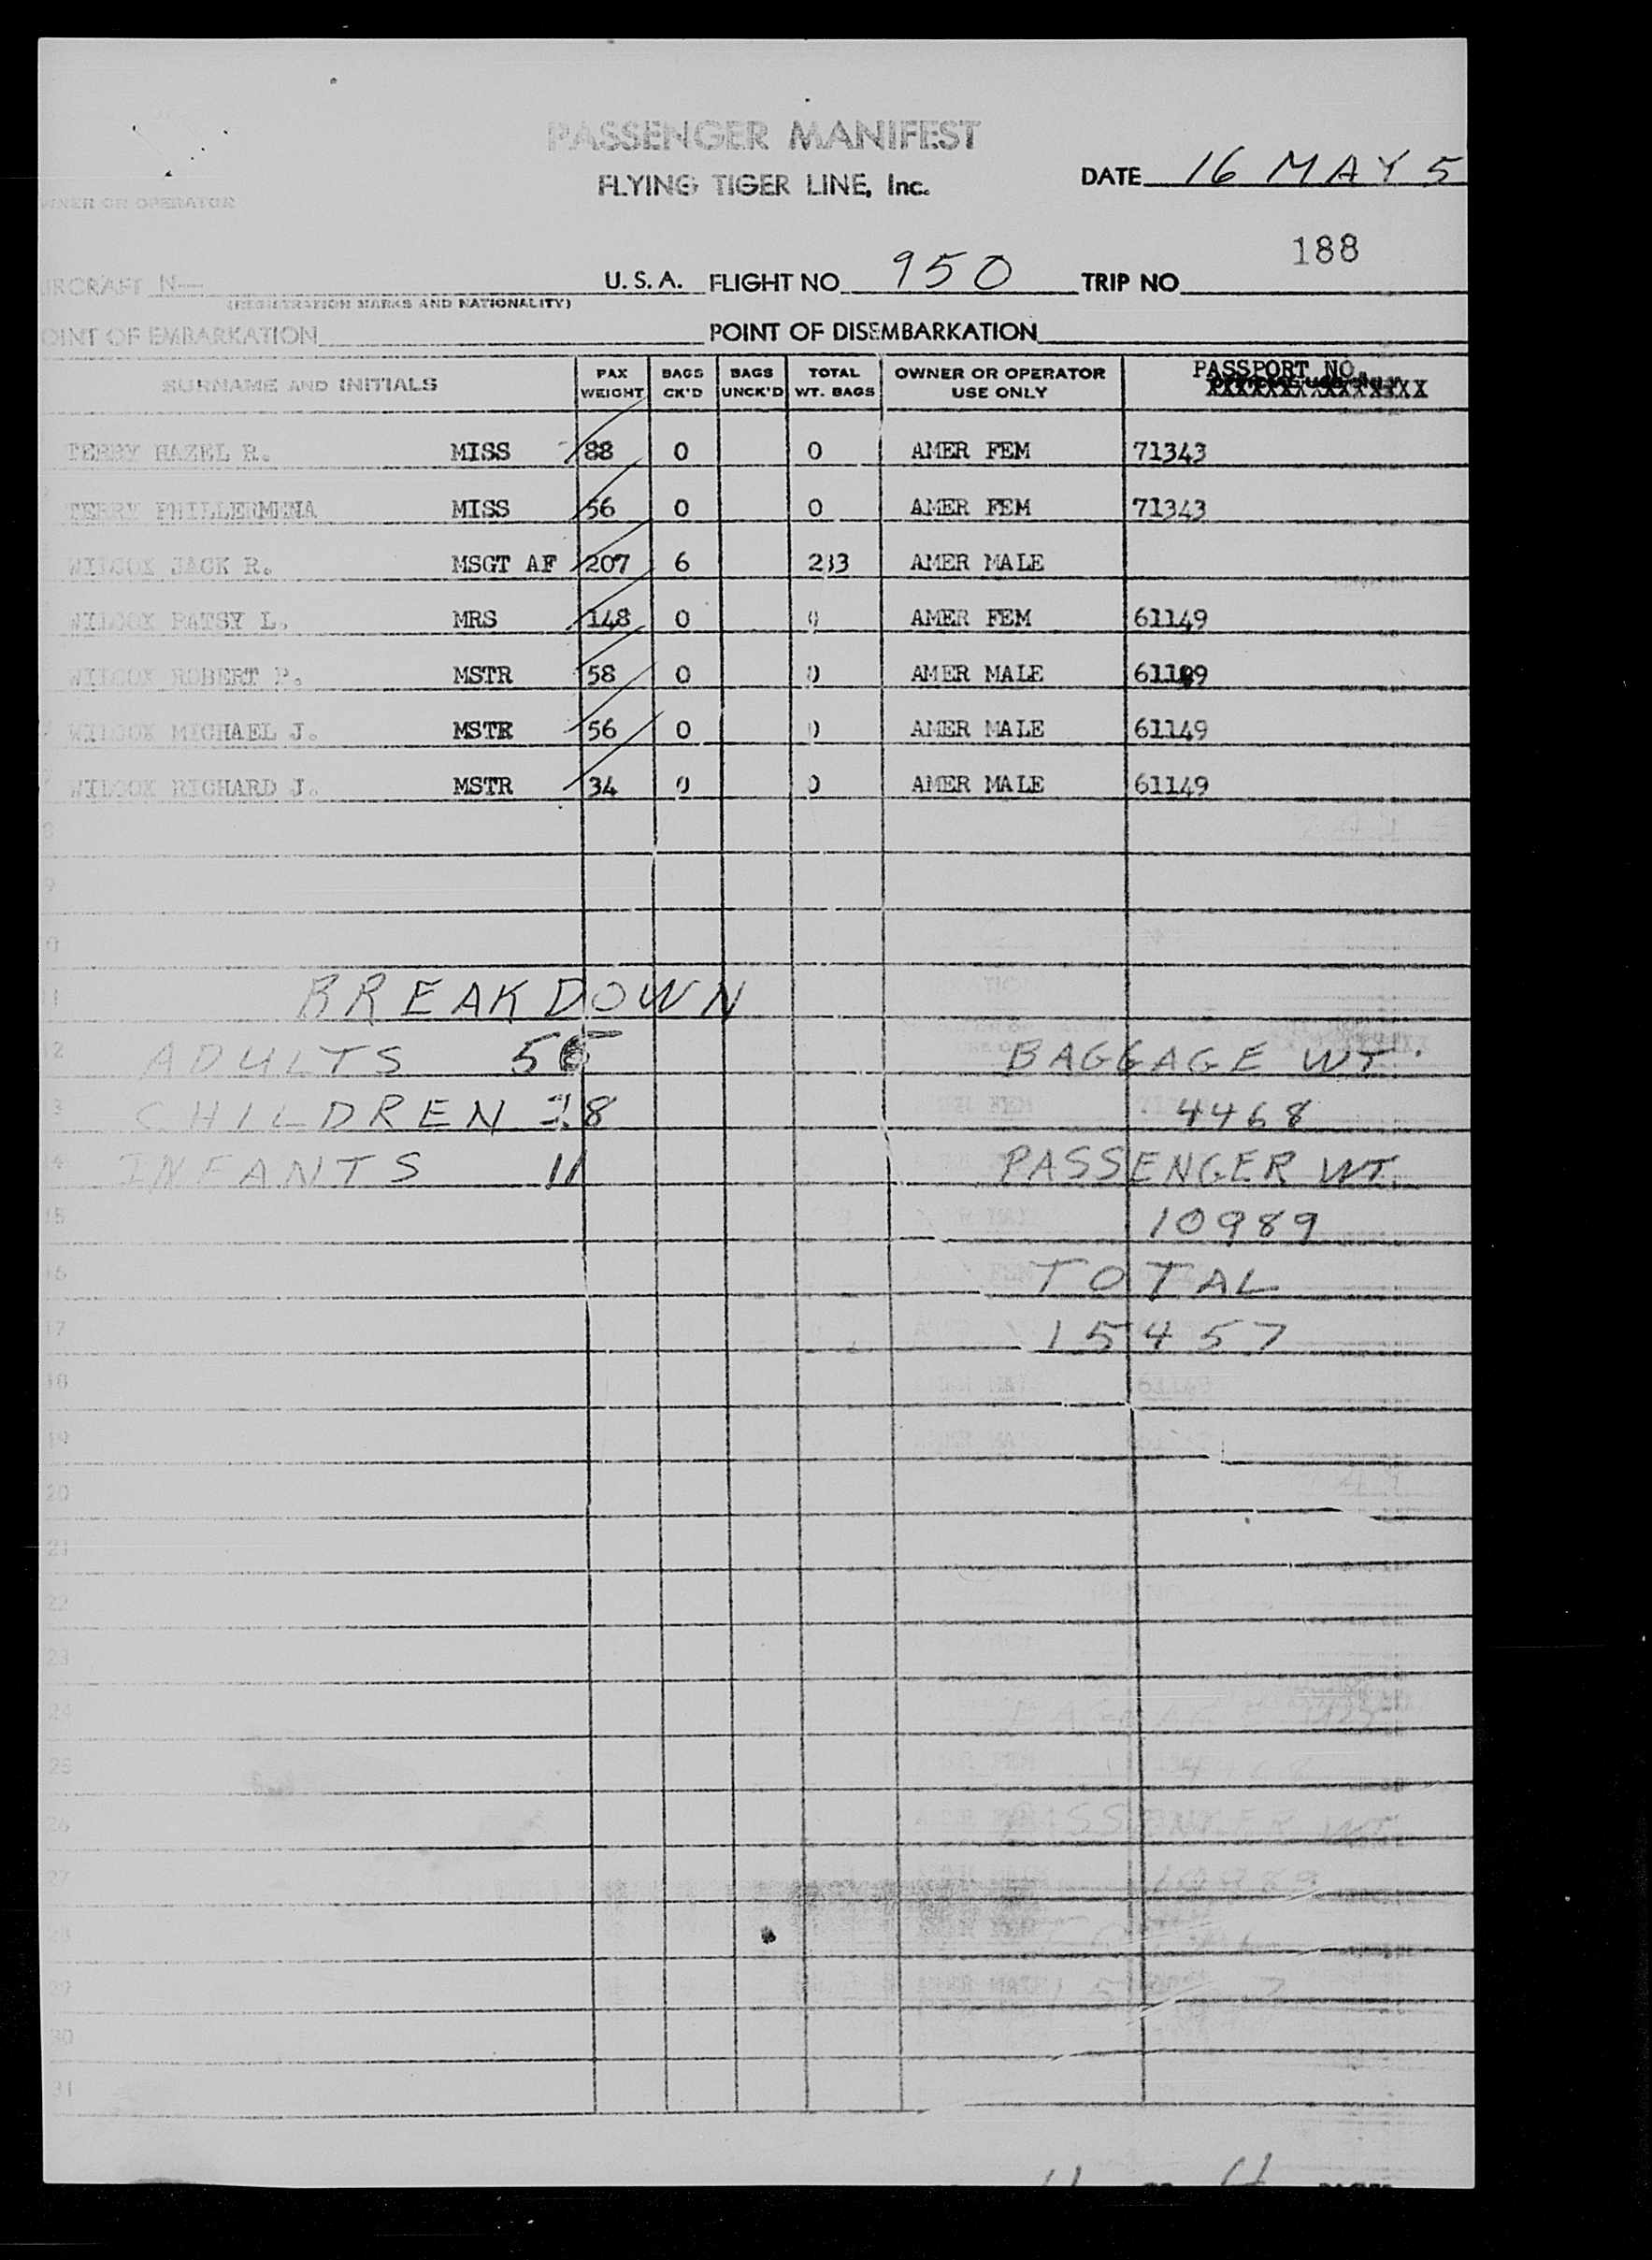 PASSENGER MANIFEST
FLYING TIGER LINE, Inc.
DATE 16 MAY 5
WNER OR OPERATOR
188
IRCRAFT N— U. S. A. FLIGHT NO. 950 TRIP NO.
(REGISTRATION MARKS AND NATIONALITY)
OINT OF EMBARKATION POINT OF DISEMBARKATION
SURNAME AND INITIALS PAX WEIGHT BAGS CK'D BAGS UNCK'D TOTAL WT. BAGS OWNER OR OPERATOR USE ONLY PASSPORT NO.
TERRY HAZEL R. MISS 88 0 0 AMER FEM 71343
TERRY PHILLERMENA MISS 56 0 0 AMER FEM 71343
WILCOX JACK R. MSGT AF 207 6 AMER MALE
WILCOX PATSY L. MRS 148 0 0 AMER FEM 61149
WILCOX ROBERT P. MSTR 58 0 0 AMER MALE
WILCOX MICHAEL J. MSTR 56 0 0 AMER MALE 61149
WILCOX RICHARD J. MSTR 34 0 0 AMER MALE 61149
8
9
0
11 BREAKDOWN
2 ADULTS BAGGAGE WT.
3 CHILDREN 4468
4 INFANTS 11 PASSENGER WT.
15 10989
16 TOTAL
17 15457
18
19
20
21
22
23
24
25
26
27
28
29
30
31